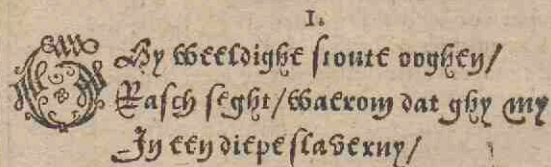 I.
GHy weeldighe stoute ooghen/
Rasch seght/waerom dat ghy my
In een diepe slaverny/